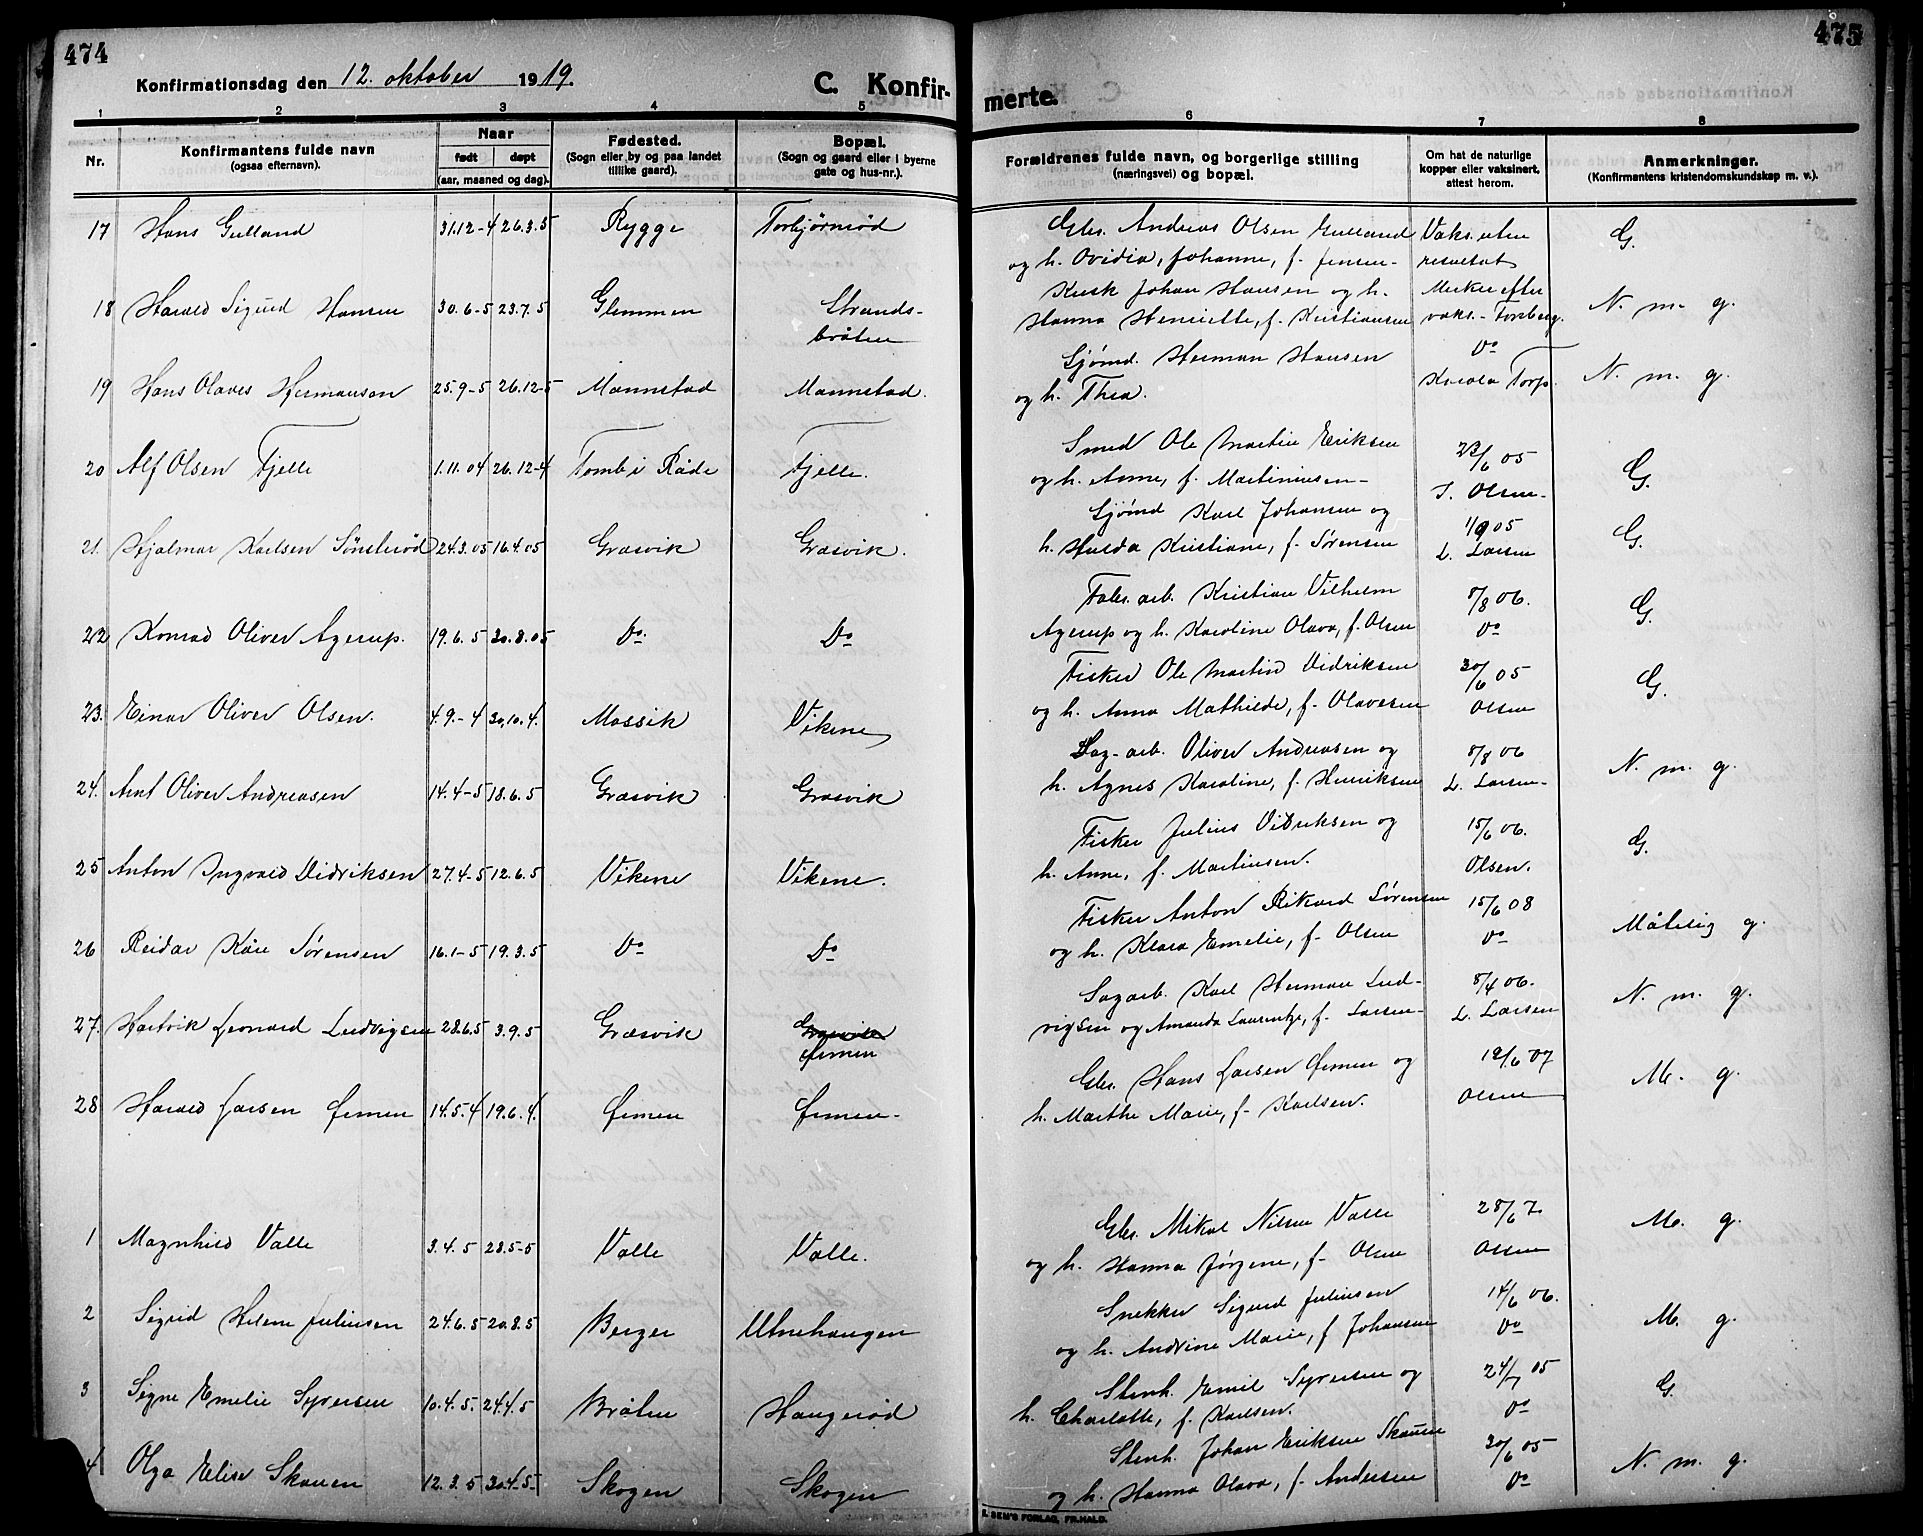 474
475
Konfirmationsdag den 12. oktober 1919.
C. Konfir-
merte.
1 2 3 4 5 6 7 8
Nr.
Konfirmantens fulde navn
(ogsaa efternavn).
Naar
født døpt
(aar, maaned og dag).
Fødested.
(Sogn eller by og paa landet
tillike gaard).
Bopæl.
(Sogn og gaard eller i byerne
gate og hus-nr.).
Forældrenes fulde navn, og borgerlige stilling
(næringsvei) og bopæl.
Om hat de naturlige
kopper eller vaksinert,
attest herom.
Anmerkninger.
(Konfirmantens kristendomskundskap m. v.).
17 Hans Gulland 31.12-4 26.3.5 Rygge Torbjørnrød
Gbr. Andreas Olsen Gulland Vaks. uten G.
og h. Ovidia, Johanne, f. Jensen- resultat
18 Harald Sigurd Hansen 30.6-5 23.7.5 Glemmen Strands-
bråten
Kusk Johan Hansen og h. Merker efter N. m. g.
Hanna Henriette, f. Kristiansen vaks.- Tonberg.
19 Hans Olaves Hermansen 25.9-5 26.12-5 Mannstad Mannstad.
Sjømd. Herman Hansen Do N. m. g.
og h. Thea. Karola Torp.
20 Alf Olsen Fjelle 1.11.04 26.12-4 Tomb i Råde Fjelle.
Smed Ole Martin Eriksen 23/6 05 G.
og h. Anne, f. Martiniusen- S. Olsen-
21. Hjalmar Karlsen Sønsterød 24.3.05 16.4.05 Græsvik Græsvik.
Sjømd Karl Johansen og 1/9 05 G.
h. Hulda Kristiane, f. Sørensen L. Larsen
22 Konrad Oliver Agerup. 19.6.5 20.8.05 Do. Do
Fabr. arb. Kristian Vilhelm 8/8 06. G.
Agerup og h. Karoline Olava, f. Olsen Do
23. Einar Oliver Olsen. 4.9.-4 30.10.4. Mossik Vikene
Fisker Ole Martin Didriksen 30/6 05 G.
og h. Anna Mathilde, f. Olavesen Olsen
24. Arnt Oliver Andreasen 14.4-5 18.6.5 Græsvik Græsvik
Sag-arb. Oliver Andreasen og 8/8 06 N. m. g.
h. Agnes Karoline, f. Henriksen L. Larsen-
25 Anton Ingvald Didriksen 27.4-5 12.6.5 Vikene Vikene.
Fisker Julius Didriksen og 15/6 06. G.
h. Anne, f. Martinsen. Olsen.
26 Reidar Kåre Sørensen 16.1-5 19.3.5 Do Do
Fisker Anton Rikard Sørensen 15/6 08 Måtelig g.
og h. Klara Emelie, f. Olsen Do
27. Hartvik Leonard Ludvigsen 28.6.5 3.9.5 Græsvik Græsvik
Ørmen
Sagarb. Karl Herman Lud- 8/4 06. N. m. g.
vigsen og Amanda Laurentze, f. Larsen- L. Larsen
28 Harald Larsen Ørmen 14.5.4 19.6.4. Ørmen Ørmen-
Gbr. Hans Larsen Ørmen og 19/6 07 M. g.
h. Marthe Marie, f. Karlsen. Olsen
1 Magnhild Valle 3.4.5 28.5-5 Valle Valle.
Gbr. Mikal Nilsen Valle 28/6 7. M. g.
og h. Hanna Jørgene, f. Olsen Olsen
2 Sigrid Helene Juliusen 24.6.5 20.8.5 Berger Utnehaugen
Snekker Sigurd Juliusen 14/6 06. M. g.
og h. Andrine Marie, f Johansen Do
3 Signe Emelie Syversen 10.4.5. 24.4.5 Bråten Haugerød
Stenh. Emil Syversen og 24/7 05 G.
h. Charlotte, f. Karlsen. Do
4 Olga Elise Skauen 12.3.5 30.4-5- Skogen Skogen
Stenh. Johan Eriksen Skauen 30/6 05 N. m. g.
og h. Hanna Olava, f. Andersen Do
E. SEM'S FORLAG, FR.HALD.